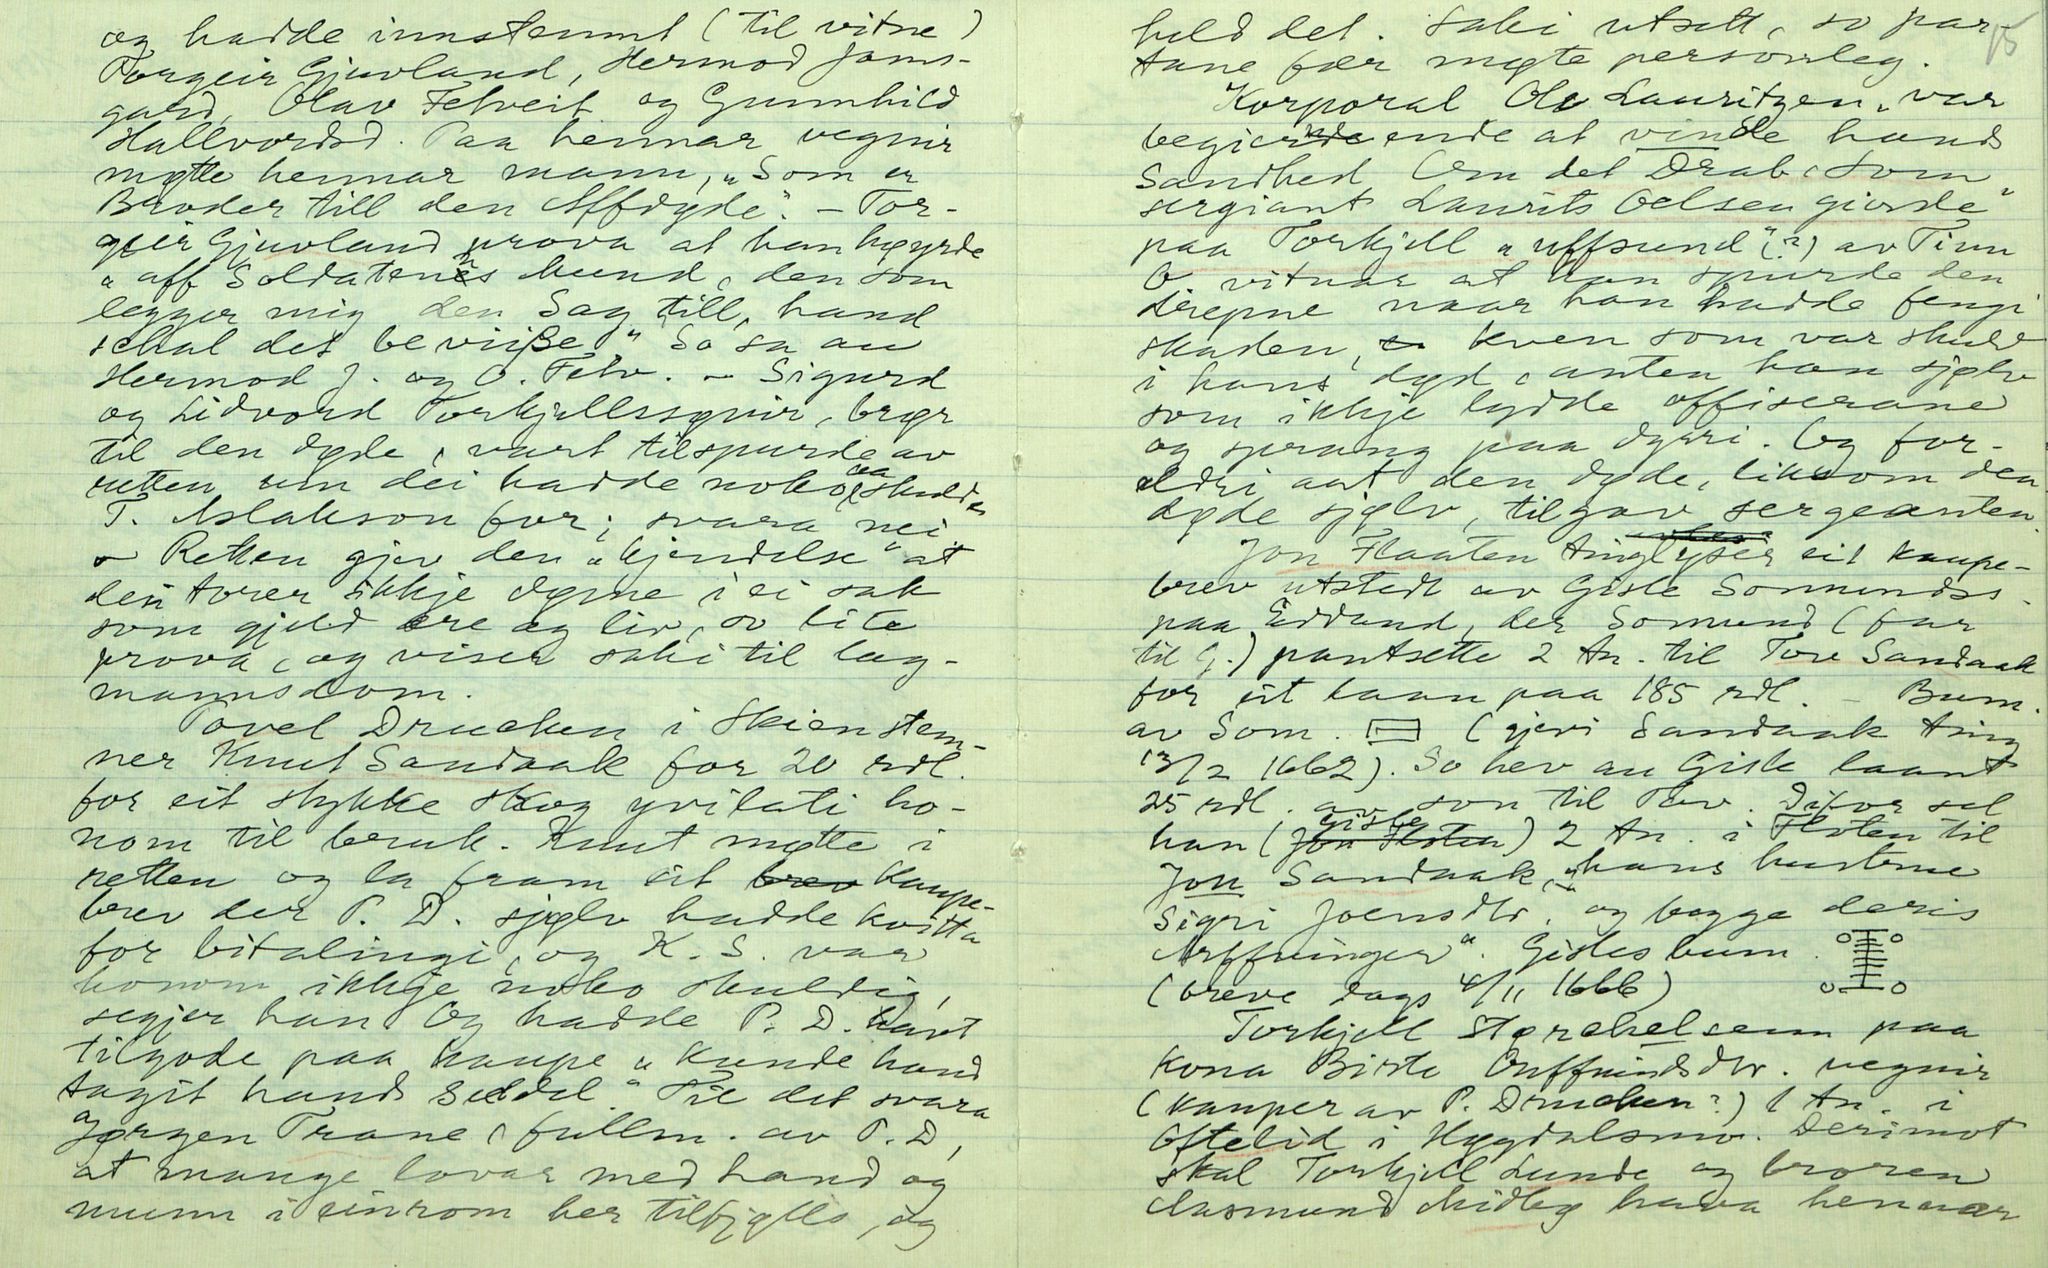 og hadde innstemt (til vitne)
Torgeir Gjuvland, Hermod Jams-
gard, Olav Felveit og Gunnhild
Hallvordsd. Paa hennar vegnir
møtte hennar mann, „Som er
Broder till den Affdyde". – Tor-
geir Gjuvland prova at han høyrde
„aff Soldatens Mund, den som
legger mig den Sag till, hand
schal det beviiße" So sa au
Hermod J. og O. Felv. – Sigurd
og Lidvord Torkjellssønir, brør
til den døde, vart tilspurde av
retten um dei hadde noko aa skulda
T. Aslakson for; svara nei
– Retten gjev den „kjendelse" at
dei torer ikkje døme i ei sak
som gjeld ære og liv, so lite
prova, og viser saki til lag-
mannsdom.
Povel Drucken i Skien stem-
ner Knut Sandaak for 20 rdl.
for eit stykke skog yvilati ho-
nom til bruk. Knut møtte i
retten og la fram eit brev kaupe-
brev der P. D. sjølv hadde kvitta
for bitalingi, og K. S. var
honom ikkje noko skuldig,
segjer han Og hadde P. D. havt
tilgode paa kaupe „kunde hand
tagit hands Seddel." Til det svara
Jørgen Trane, fullm. av P. D,
at mange lovar med hand og
munn i einrom her tilfjells, og
held det. Saki utsett, so par- 15
tane fær møte personleg.
Korporal Ole Lauritzen „var
begierende at vinde hands
Sandhed Om det Drab, som
sergiant Laurits Oelsen giorde"
paa Torkjell „uffsund" (?) av Tinn
O vitnar at han spurde den
drepne naar han hadde fengi
skaden, kven som var skuld
i hans død, anten han sjølv
som ikkje lydde offiserane
og sprang paa dyri. Og for-
eldri aat den døde, liksom den
døde sjølv, tilgav sergeanten.
Jon Flaaten tinglyser eit kaupe-
brev utstedt av Gisle Somundss.
paa Eddand, der Somund (far
til G.) pantsette 2 tn. til Tov Sandaak
for eit laan paa 185 rdl. – Bum.
av Som. (gjevi Sandaak ting
13/2 1662). So hev au Gisle laant
25 rdl. av son til Tov. Difor sel
han (Jon Floten Gisle) 2 tn. i Floten til
Jon Sandaak, „hans hustrue
Sigri Joensdtr. og begge deris
Arffvinger". Gisles bum.
(breve dags 4/11 1666)
Torkjell Størchelsenn paa
kona Birte Ouffvindsdtr. vegnir
(kauper av P. Drucken?) 1 tn. i
Oftelid i Høydalsmo. Derimot
skal Torkjell Lunde og broren
Aasmund Midbø hava hennar